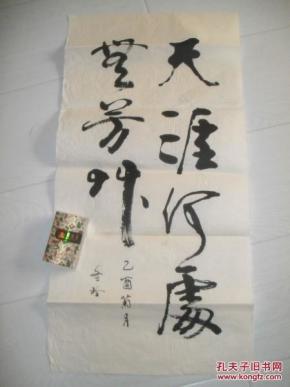 天涯何處
無芳艸
乙酉菊月
孔夫子旧书网
www.kongfz.com